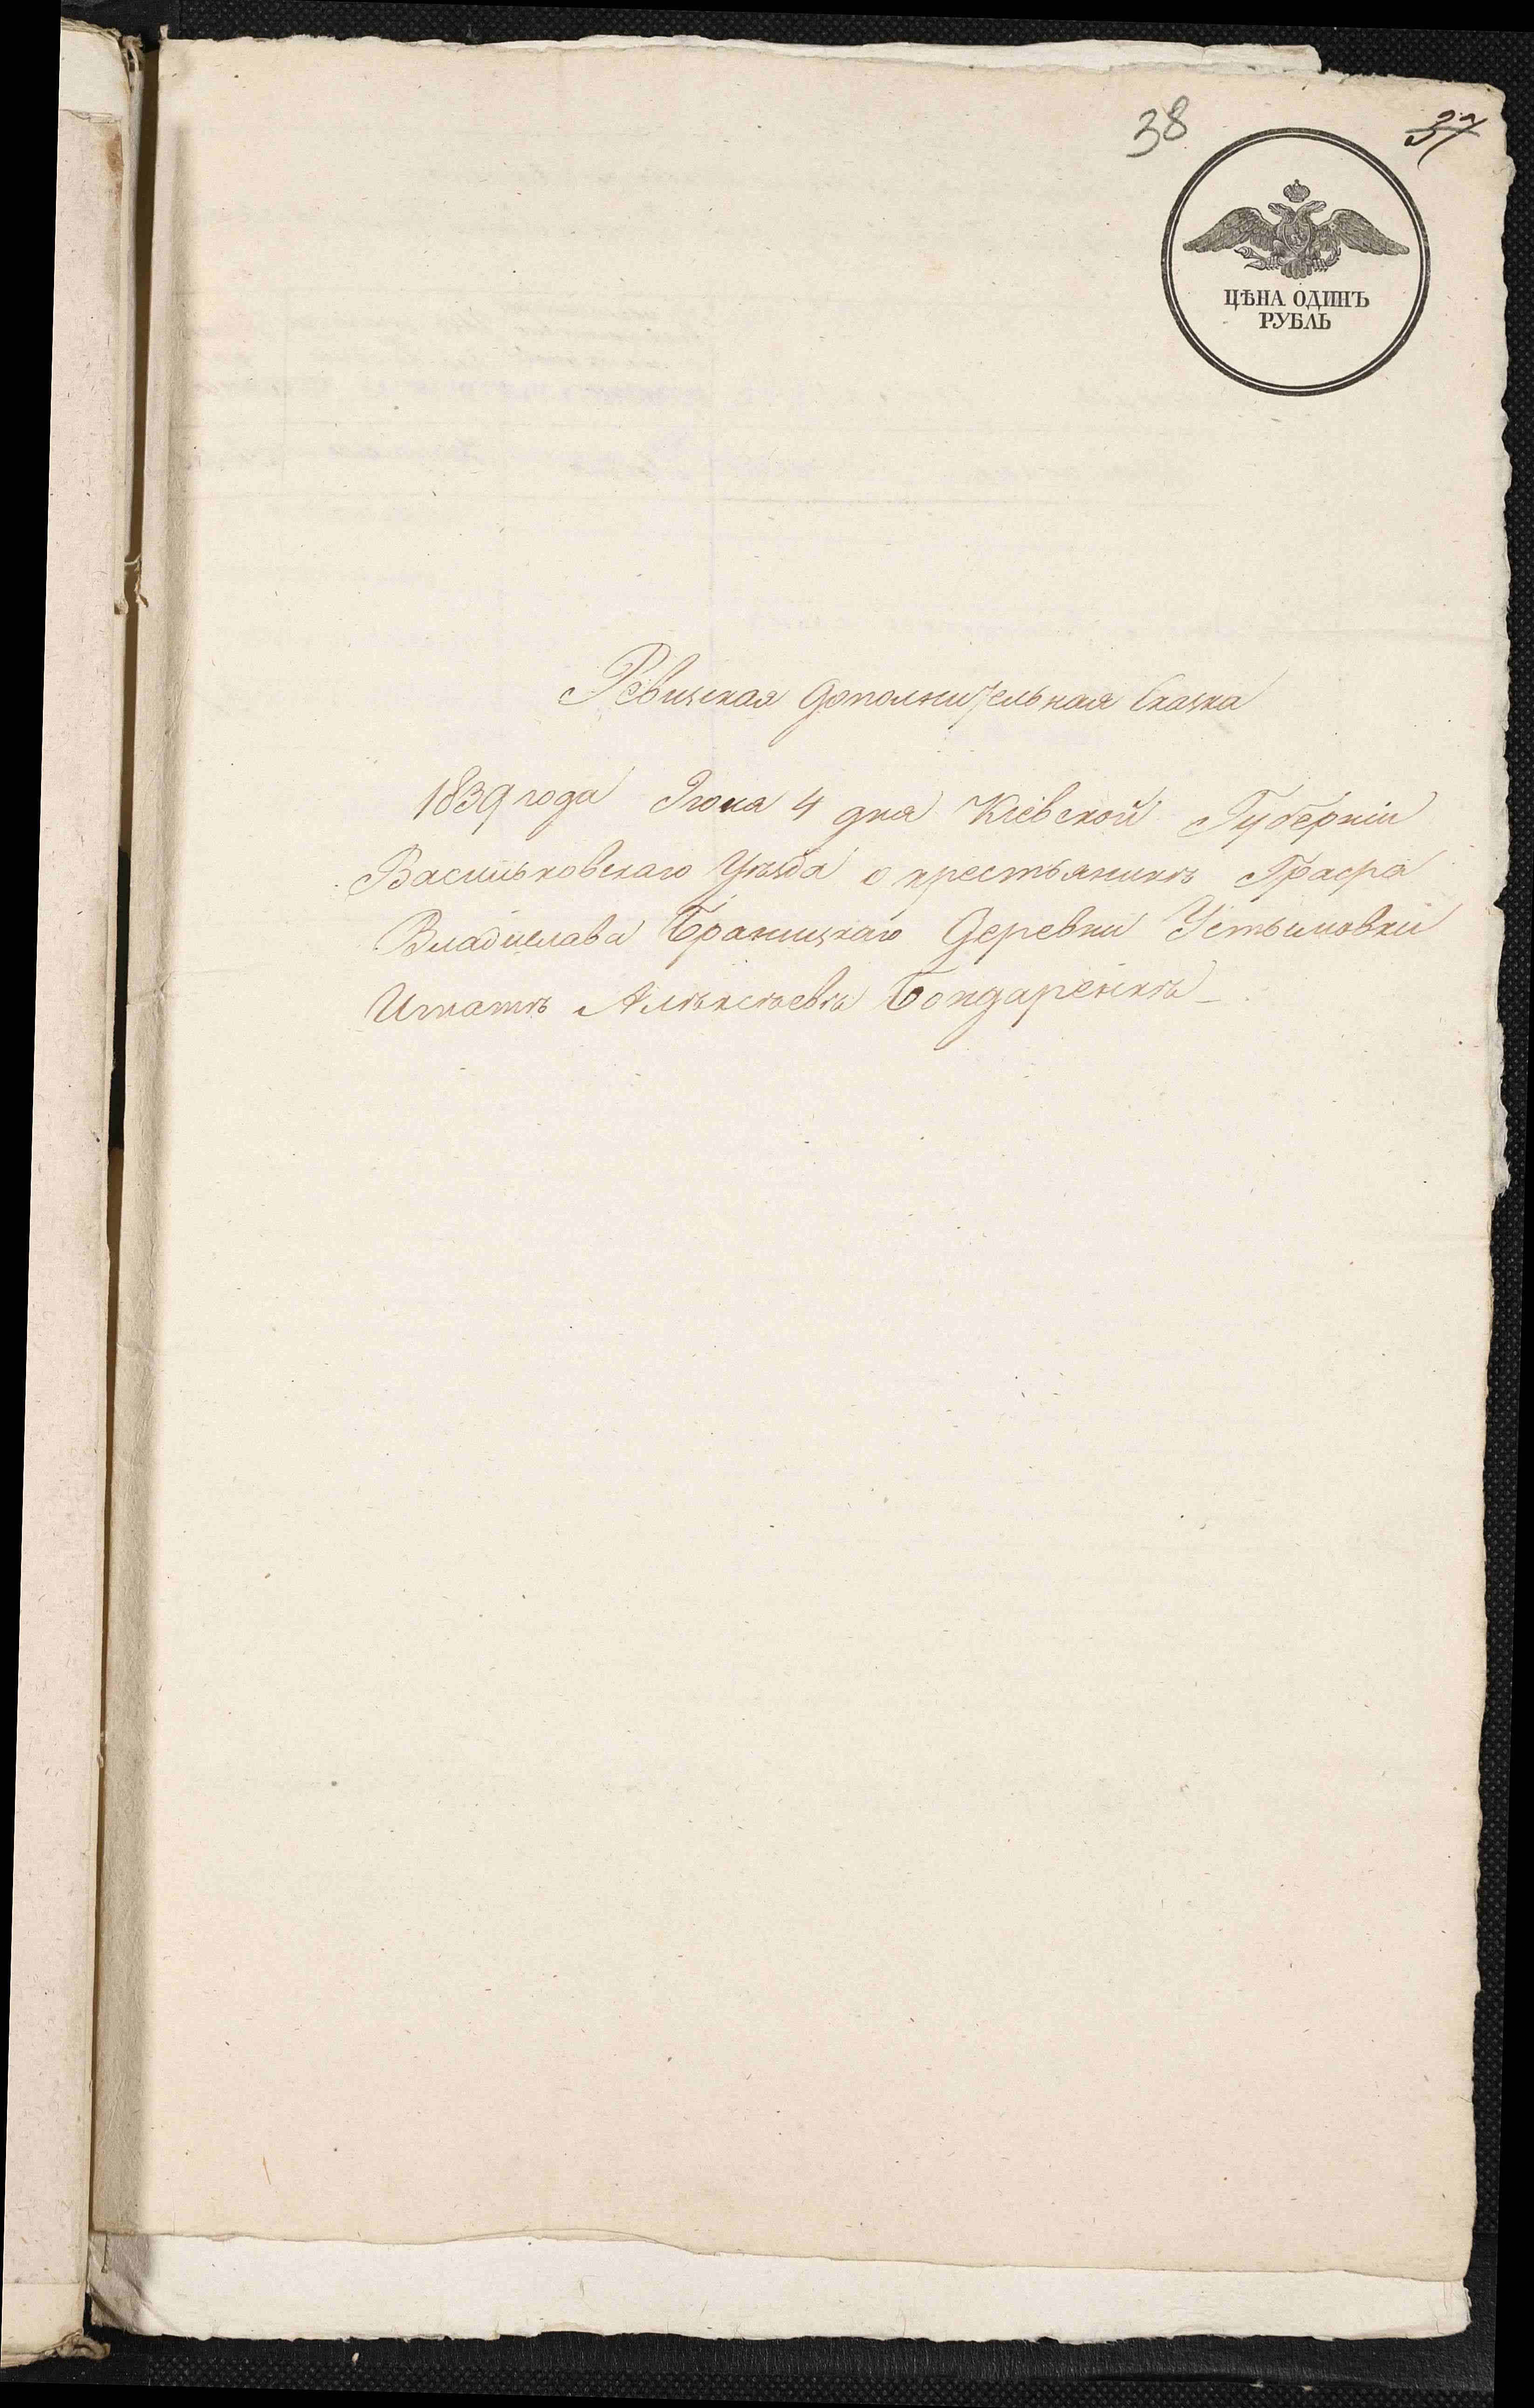 38
37
ЦѢНА ОДИНЪ
РУБЛЬ
Ревизская дополнительная Сказка
1839 года Іюня 4 дня Кіевской Губерніи
Васильковскаго Уѣзда о крестьянинѣ Графа
Владислава Браницкаго Деревни Устымовки
Алѣксѣевѣ Бондаренкѣ